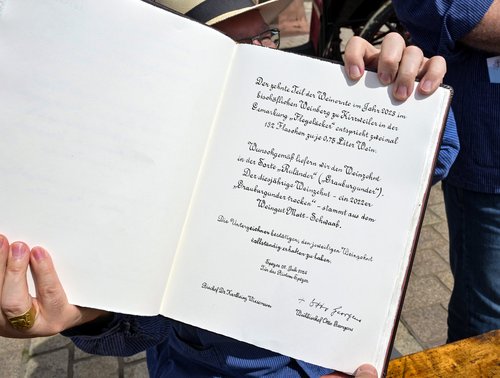 Der zehnte Teil der Weinernte im Jahr 2023 im
bischöflichen Weinberg zu Kirrweiler in der
Gemarkung „Flegeläcker" entspricht zweimal
132 Flaschen zu je 0,75 Liter Wein.
Wunschgemäß liefern wir den Weinzehnt
in der Sorte „Ruländer" („Grauburgunder").
Der diesjährige Weinzehnt – ein 2022er
„Grauburgunder trocken" – stammt aus dem
Weingut Mott- Schwaab.
Die Unterzeichner bestätigen, den jeweiligen Weinzehnt
vollständig erhalten zu haben.
Speyer, Juli 2024
Für das Bistum Speyer
Bischof Dr. Karlheinz Wiesemann
Weihbischof Otto Georgens